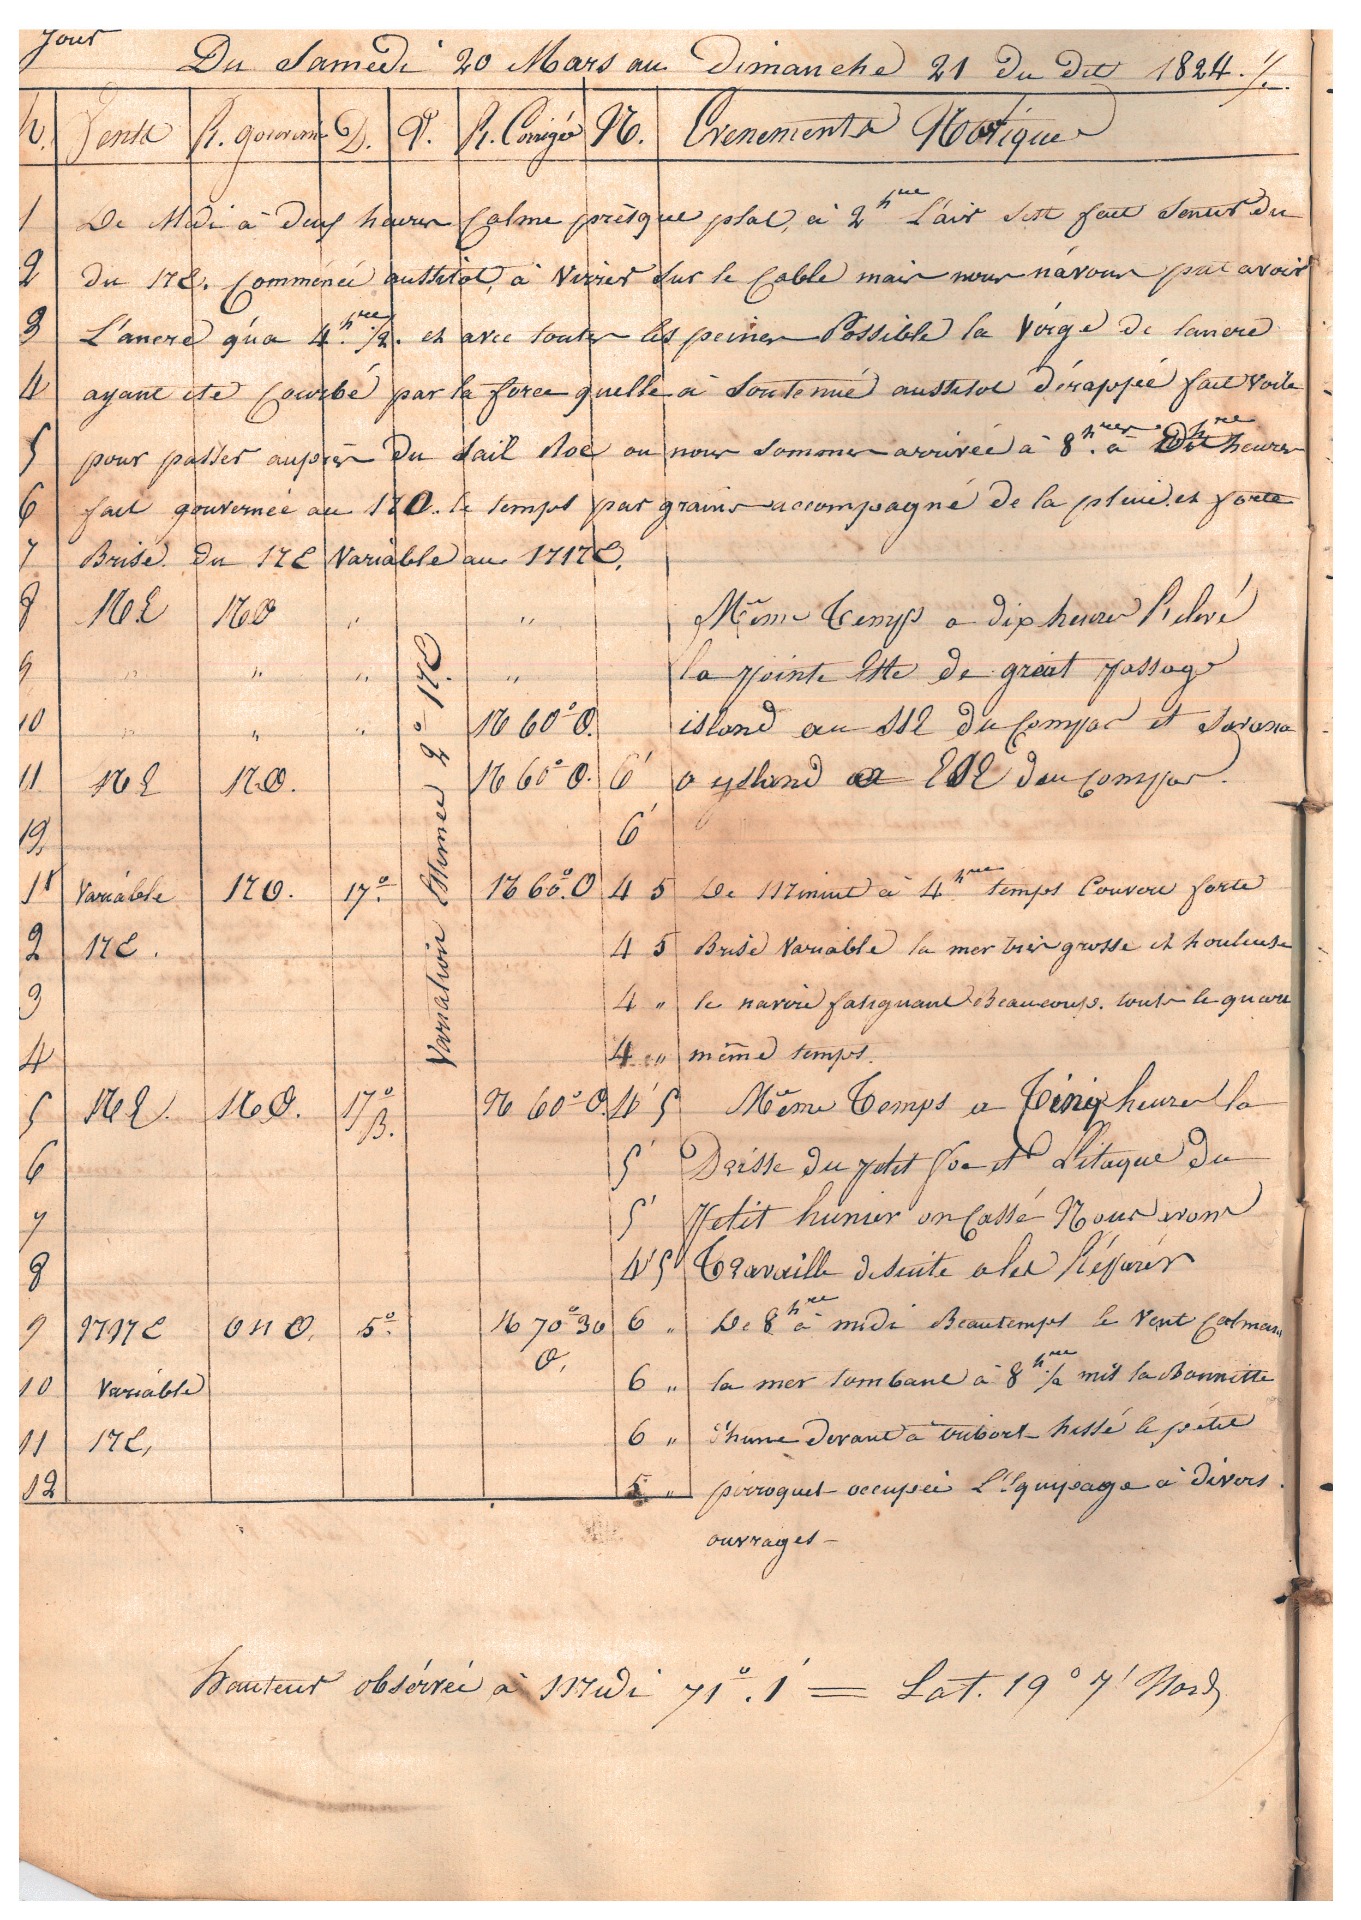 Jour
Du Samedi 20 Mars au Dimanche 21 du dit 1824 ./.
h. Vents R. gouverné D. V. R. Corrigée N. Evenements Notique
1 De Midi à deux heures Calme presque plat, à 2 hre L'air s'est fait Sentir du
2 du NE. Commencé aussitôt, à Virrer Sur le Cable mais nous n'avons put avoir
3 L'ancre q'ua 4. hres 1/2. et avec toutes les peines Possible la Verge de lancre
4 ayant été Courbé par la force quelle à Soutenué aussitot dérappée fait Voile
5 pour passer auprès du Sail Roc ou nous Sommes arrivée à 8. hres à heures
6 fait gouvernée au NO. le temps par grains accompagné de la pluie. et forte
7 Brise. du NE Variable au NNE.
8 NE NO " " Même Temps a dix heures Relevé
9 " " " " la pointe Este de great passage
10 " " " N 60° O. island au SSE du Compas et Savana
11 NE NO. N 60° O. 6' a ysland ESE du compas.
12 6'
Variation Estimée 2° NE.
1 Variable NO. 17° N 60° O 4 5 De Minuit à 4 hres temps Couvert forte
2 NE. 4 5 Brise Variable la mer très grosse et houleuse
3 4 " le navire fatiguant Beaucoup. tout le quart
4 4 " même temps.
5 NE. NO. 17° B. N 60° O. 4' 5 Même Temps a Cinq heures la
6 5' Drisse du petit foc et L'itaque du
7 5' Petit hunier on Cassé Nous avons
8 4' 5 Travaillé desuite a les Réparér
9 NNE ONO. 5° N 70° 30 O. 6 " De 8 hre à midi Beautemps le Vent Calmant
10 Variable 6 " la mer tombant à 8 hre 1/2 mit la Bonnette
11 NE, 6 " d'hune devant à tribort hissé le petit
12 5 " perroquet occupée L'Equipage à divers.
ouvrages -
Hauteur observée à Midi 71°. 1' = Lat. 19° 7' Nord